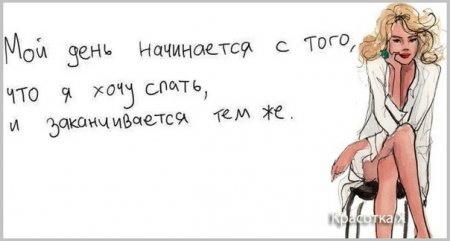 Мой день начинается с того,
что я хочу спать,
и заканчивается тем же.
Красотка